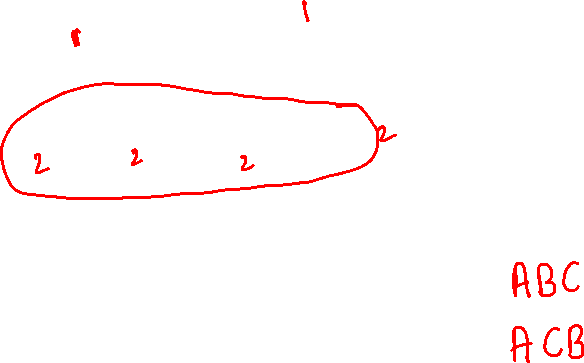 1 1
2 2 2 2
ABC
ACB